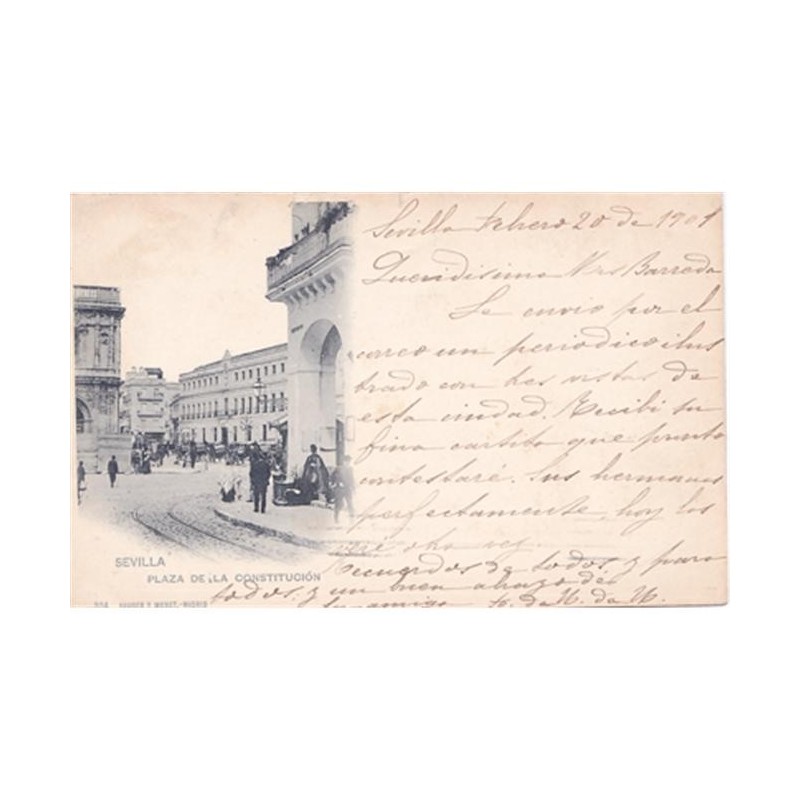 Sevilla Febrero 20 de 1901
Queridisimo Barreda
Le envio por el
correo un periodico ilus
trado con las vistas de
esta ciudad. Recibi su
fina cartita que pronto
contestaré. Sus hermanas
perfectamente, hoy los
otra vez.
Recuerdos de todos, y para
todos. y un buen abrazo de
su amigo
SEVILLA
PLAZA DE LA CONSTITUCIÓN
304 HAUSER Y MENET.-MADRID